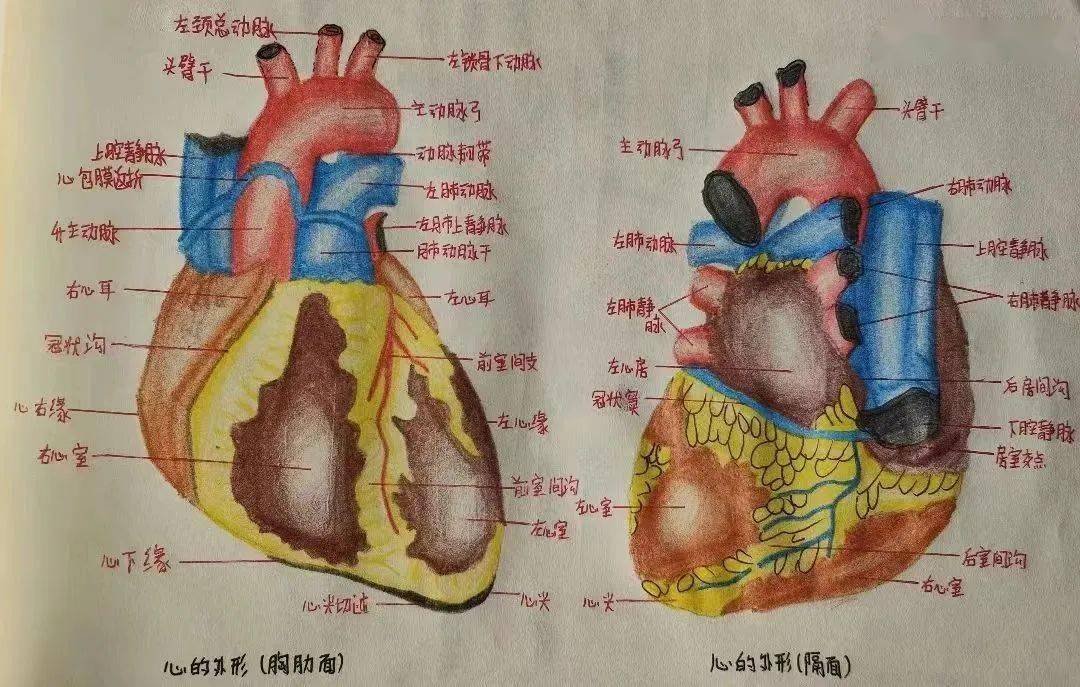 左颈总动脉
头臂干
左锁骨下动脉
主动脉弓
上腔静脉
动脉韧带
心包膜返折
左肺动脉
升主动脉
左肺上静脉
肺动脉干
右心耳
左心耳
冠状沟
前室间支
心右缘
左心缘
右心室
前室间沟
左心室
心下缘
心尖切迹
心尖
心的外形(胸肋面)
头臂干
主动脉弓
右肺动脉
左肺动脉
上腔静脉
左肺静
脉
右肺静脉
左心房
后房间沟
冠状窦
下腔静脉
房室交点
左心室
后室间沟
右心室
心尖
心的外形(隔面)